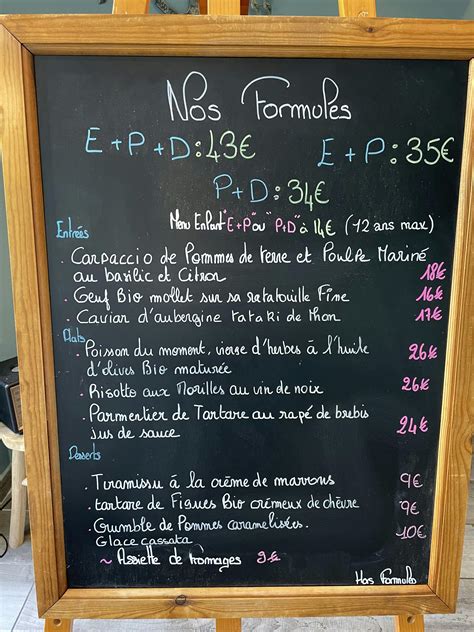 Nos Formules
E+P+D:43€ E+P:35€
P+D:34€
Menu Enfant "E+P" ou "P+D" à 14€ (12 ans max)
Entrées
. Carpaccio de Pommes de terre et Poulpe Mariné
au basilic et Citron 18€
. Oeuf Bio mollet sur sa ratatouille Fine 16€
. Caviar d'aubergine tataki de thon 17€
Plats
. Poisson du moment, vierge d'herbes à l'huile
d'olives Bio maturée 26€
. Risotto aux Morilles au vin de noix 26€
. Parmentier de Tartare au rapé de brebis
jus de sauce 24€
Desserts
. Tiramissu à la crème de marrons 9€
. tartare de Figues Bio crémeux de chèvre 9€
. Crumble de Pommes caramelisées. 10€
Glace cassata
~ Assiette de fromages 9€
Hors Formules